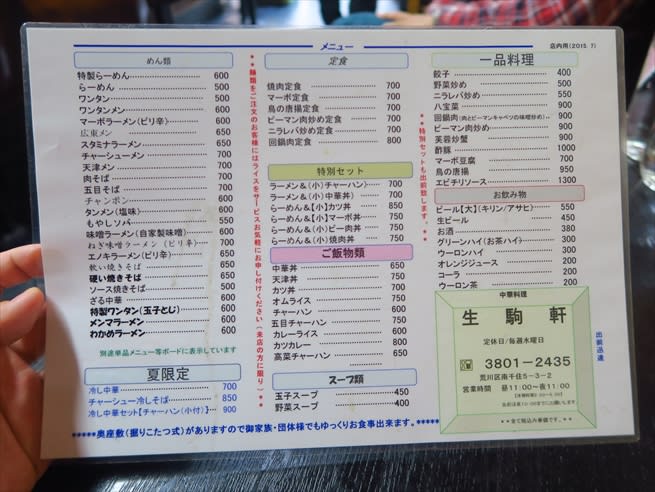 メニュー
店内用(2015. 7)
めん類
特製らーめん 600
らーめん 500
ワンタン 500
ワンタンメン 600
マーボラーメン(ピリ辛) 600
広東メン 650
スタミナラーメン 650
チャーシューメン 700
天津メン 700
肉そば 700
五目そば 700
チャンポン 700
タンメン(塩味) 600
もやしソバ 550
味噌ラーメン(自家製味噌) 600
ねぎ味噌ラーメン(ピリ辛) 700
エノキラーメン(ピリ辛) 650
軟い焼きそば 650
硬い焼きそば 650
ソース焼きそば 500
ざる中華 600
特製ワンタン(玉子とじ) 600
メンマラーメン 600
わかめラーメン 600
別途単品メニュー等ボードに表示しています
夏限定
冷し中華 700
チャーシュー冷しそば 850
冷し中華セット【チャーハン(小付)】 900
**麺類をご注文のお客様にはライスをサービスお気軽にお申し付けください(来店の方に限り)**
定食
焼肉定食 700
マーボ定食 700
鳥の唐揚定食 700
ピーマン肉炒め定食 700
ニラレバ炒め定食 700
回鍋肉定食 800
特別セット
ラーメン&(小)チャーハン 700
ラーメン&(小)中華丼 700
らーめん&【小】カツ丼 850
らーめん&【小】マーボ丼 750
らーめん&(小)ビー肉丼 750
らーめん&(小)焼肉丼 750
ご飯物類
中華丼 650
天津丼 750
カツ丼 700
オムライス 750
チャーハン 600
五目チャーハン 750
カレーライス 600
カツカレー 800
高菜チャーハン 650
スープ類
玉子スープ 450
野菜スープ 400
**特別セットも出前致します。**
一品料理
餃子 400
野菜炒め 500
ニラレバ炒め 550
八宝菜 900
回鍋肉(肉とピーマンキャベツの味噌炒め) 900
ピーマン肉炒め 900
芙蓉炒蟹 900
酢豚 1000
マーボ豆腐 700
鳥の唐揚 950
エビチリソース 1300
お飲み物
ビール【大】(キリン/アサヒ) 550
生ビール 450
お酒 380
グリーンハイ(お茶ハイ) 300
ウーロンハイ 300
オレンジジュース 200
コーラ 200
ウーロン茶 200
中華料理
生駒軒
定休日/毎週水曜日
3801-2435
荒川区南千住5-3-2
営業時間 昼11:00~夜11:00
**全て税込み単価です。**
出前迅速
*****奥座敷(掘りこたつ式)がありますので御家族・団体様でもゆっくりお食事出来ます。*****